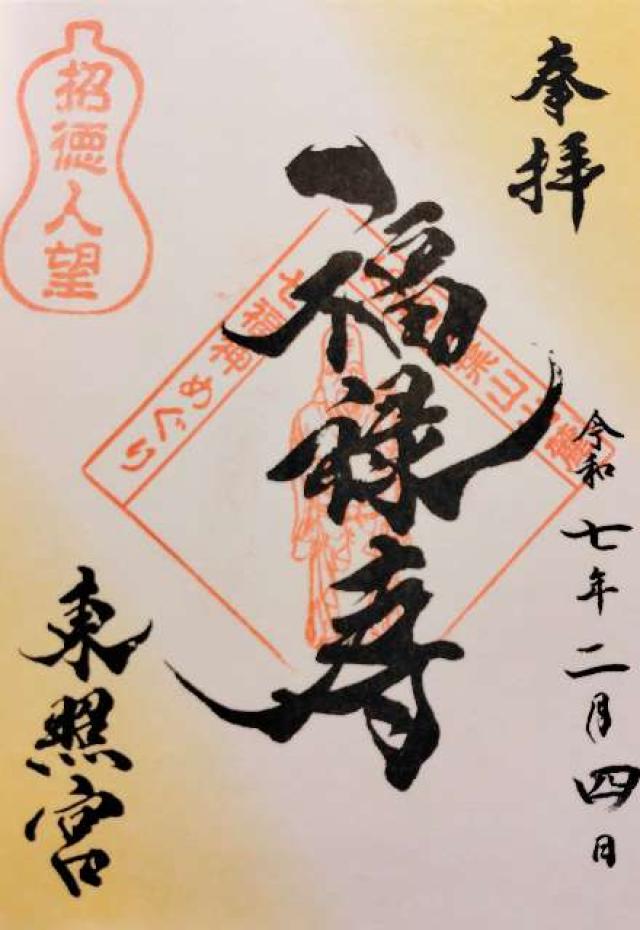 奉拝
令和七年二月四日
福禄寿
七福神めぐり
招徳人望
東照宮